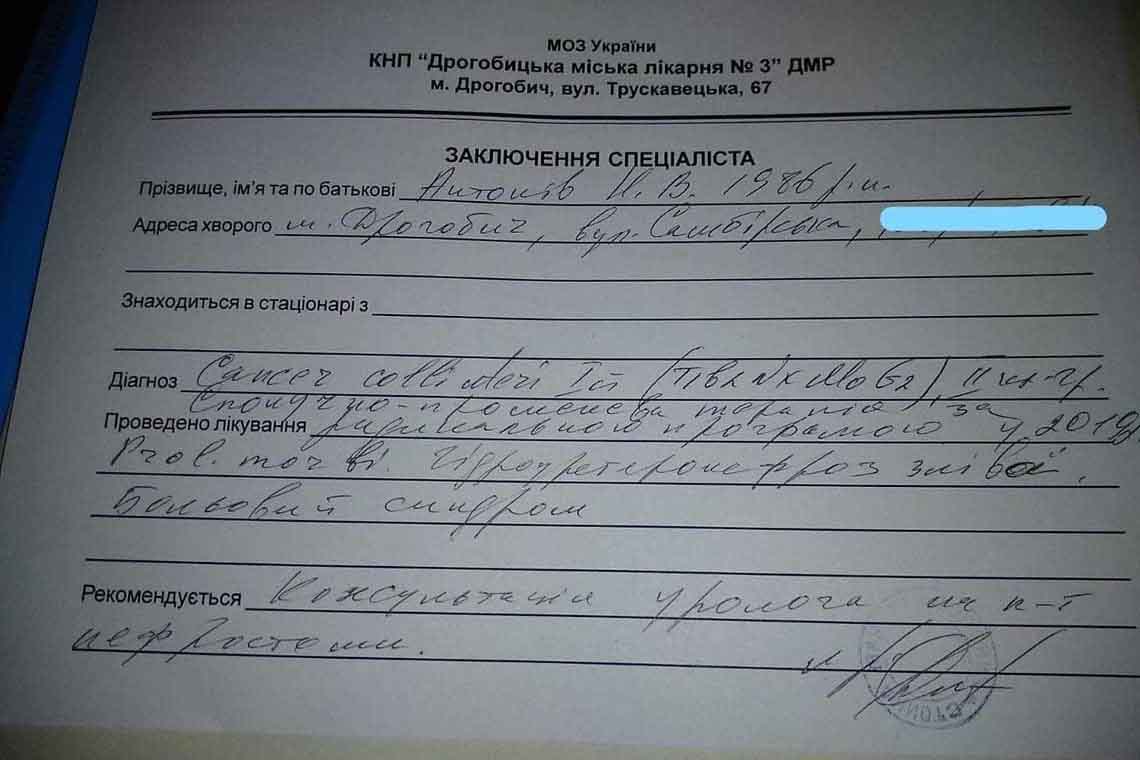 МОЗ України
КНП “Дрогобицька міська лікарня № 3” ДМР
м. Дрогобич, вул. Трускавецька, 67
ЗАКЛЮЧЕННЯ СПЕЦІАЛІСТА
Прізвище, ім’я та по батькові Антонів Н. В. 1986 р.н.
Адреса хворого м. Дрогобич, вул. Самбірська,
Знаходиться в стаціонарі з
Діагноз Cancer colli uteri (T1b2NxMoG2), II кл. гр.
Сполучно-променева терапія за
Проведено лікування радикальною програмою у 2019р
гідроуретеронефроз зліва.
Больовий синдром
Рекомендується Консультація уролога на п-т
нефростоми.